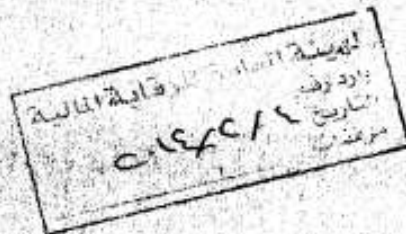 الهيئة العامة للرقابة المالية
وارد رقم
التاريخ ٤/٢/٢٠١٤
مرفقات